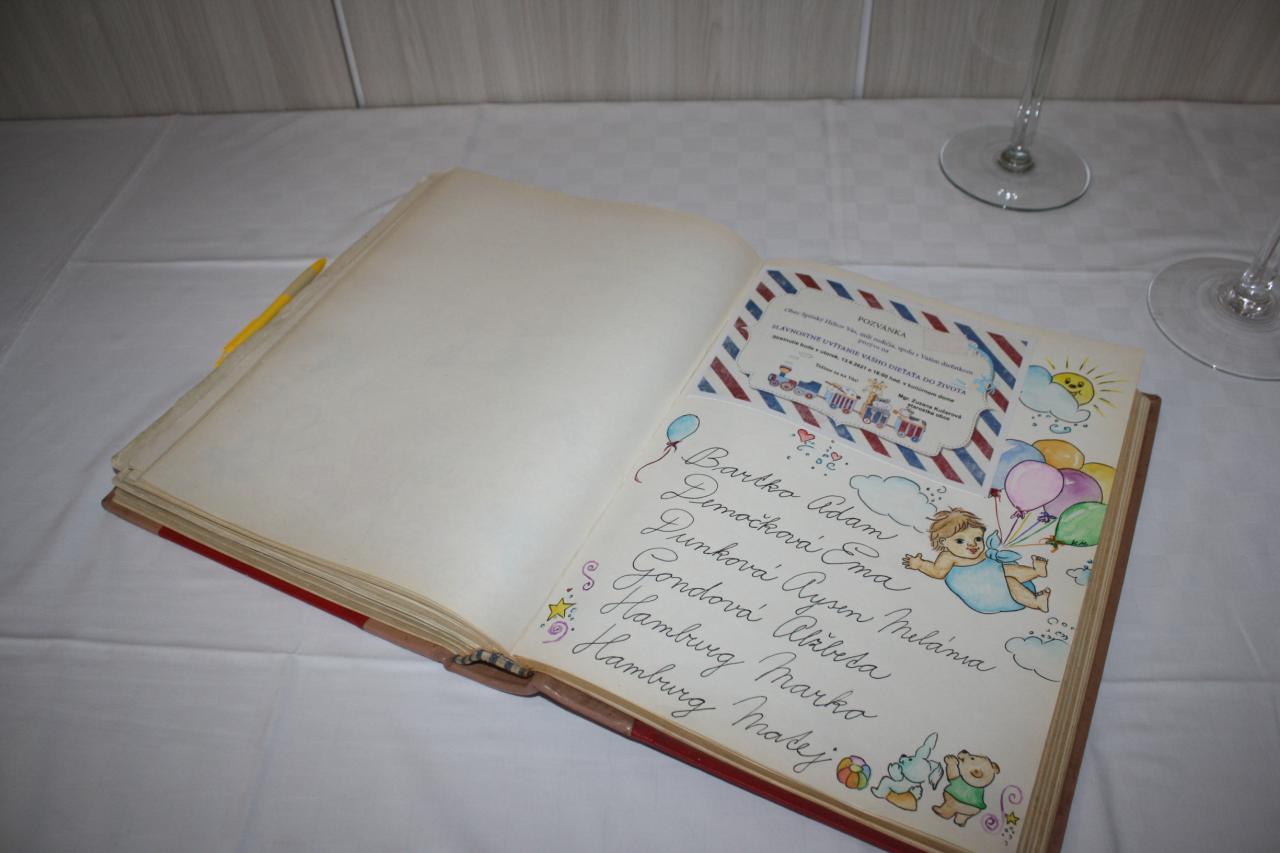 POZVÁNKA
Obec Spišský Hrhov Vás, milí rodičia, spolu s Vaším dieťatkom
pozýva na
SLÁVNOSTNÉ UVÍTANIE VÁŠHO DIEŤAŤA DO ŽIVOTA
ktoré bude v utorok, 13.8.2021 o 16:00 hod. v kultúrnom dome
Tešíme sa na Vás!
Mgr. Zuzana Kučerová
starostka obce
Bartko Adam
Demočková Ema
Dunková Aysen Melánia
Gondová Alžbeta
Hamburg Marko
Hamburg Matej